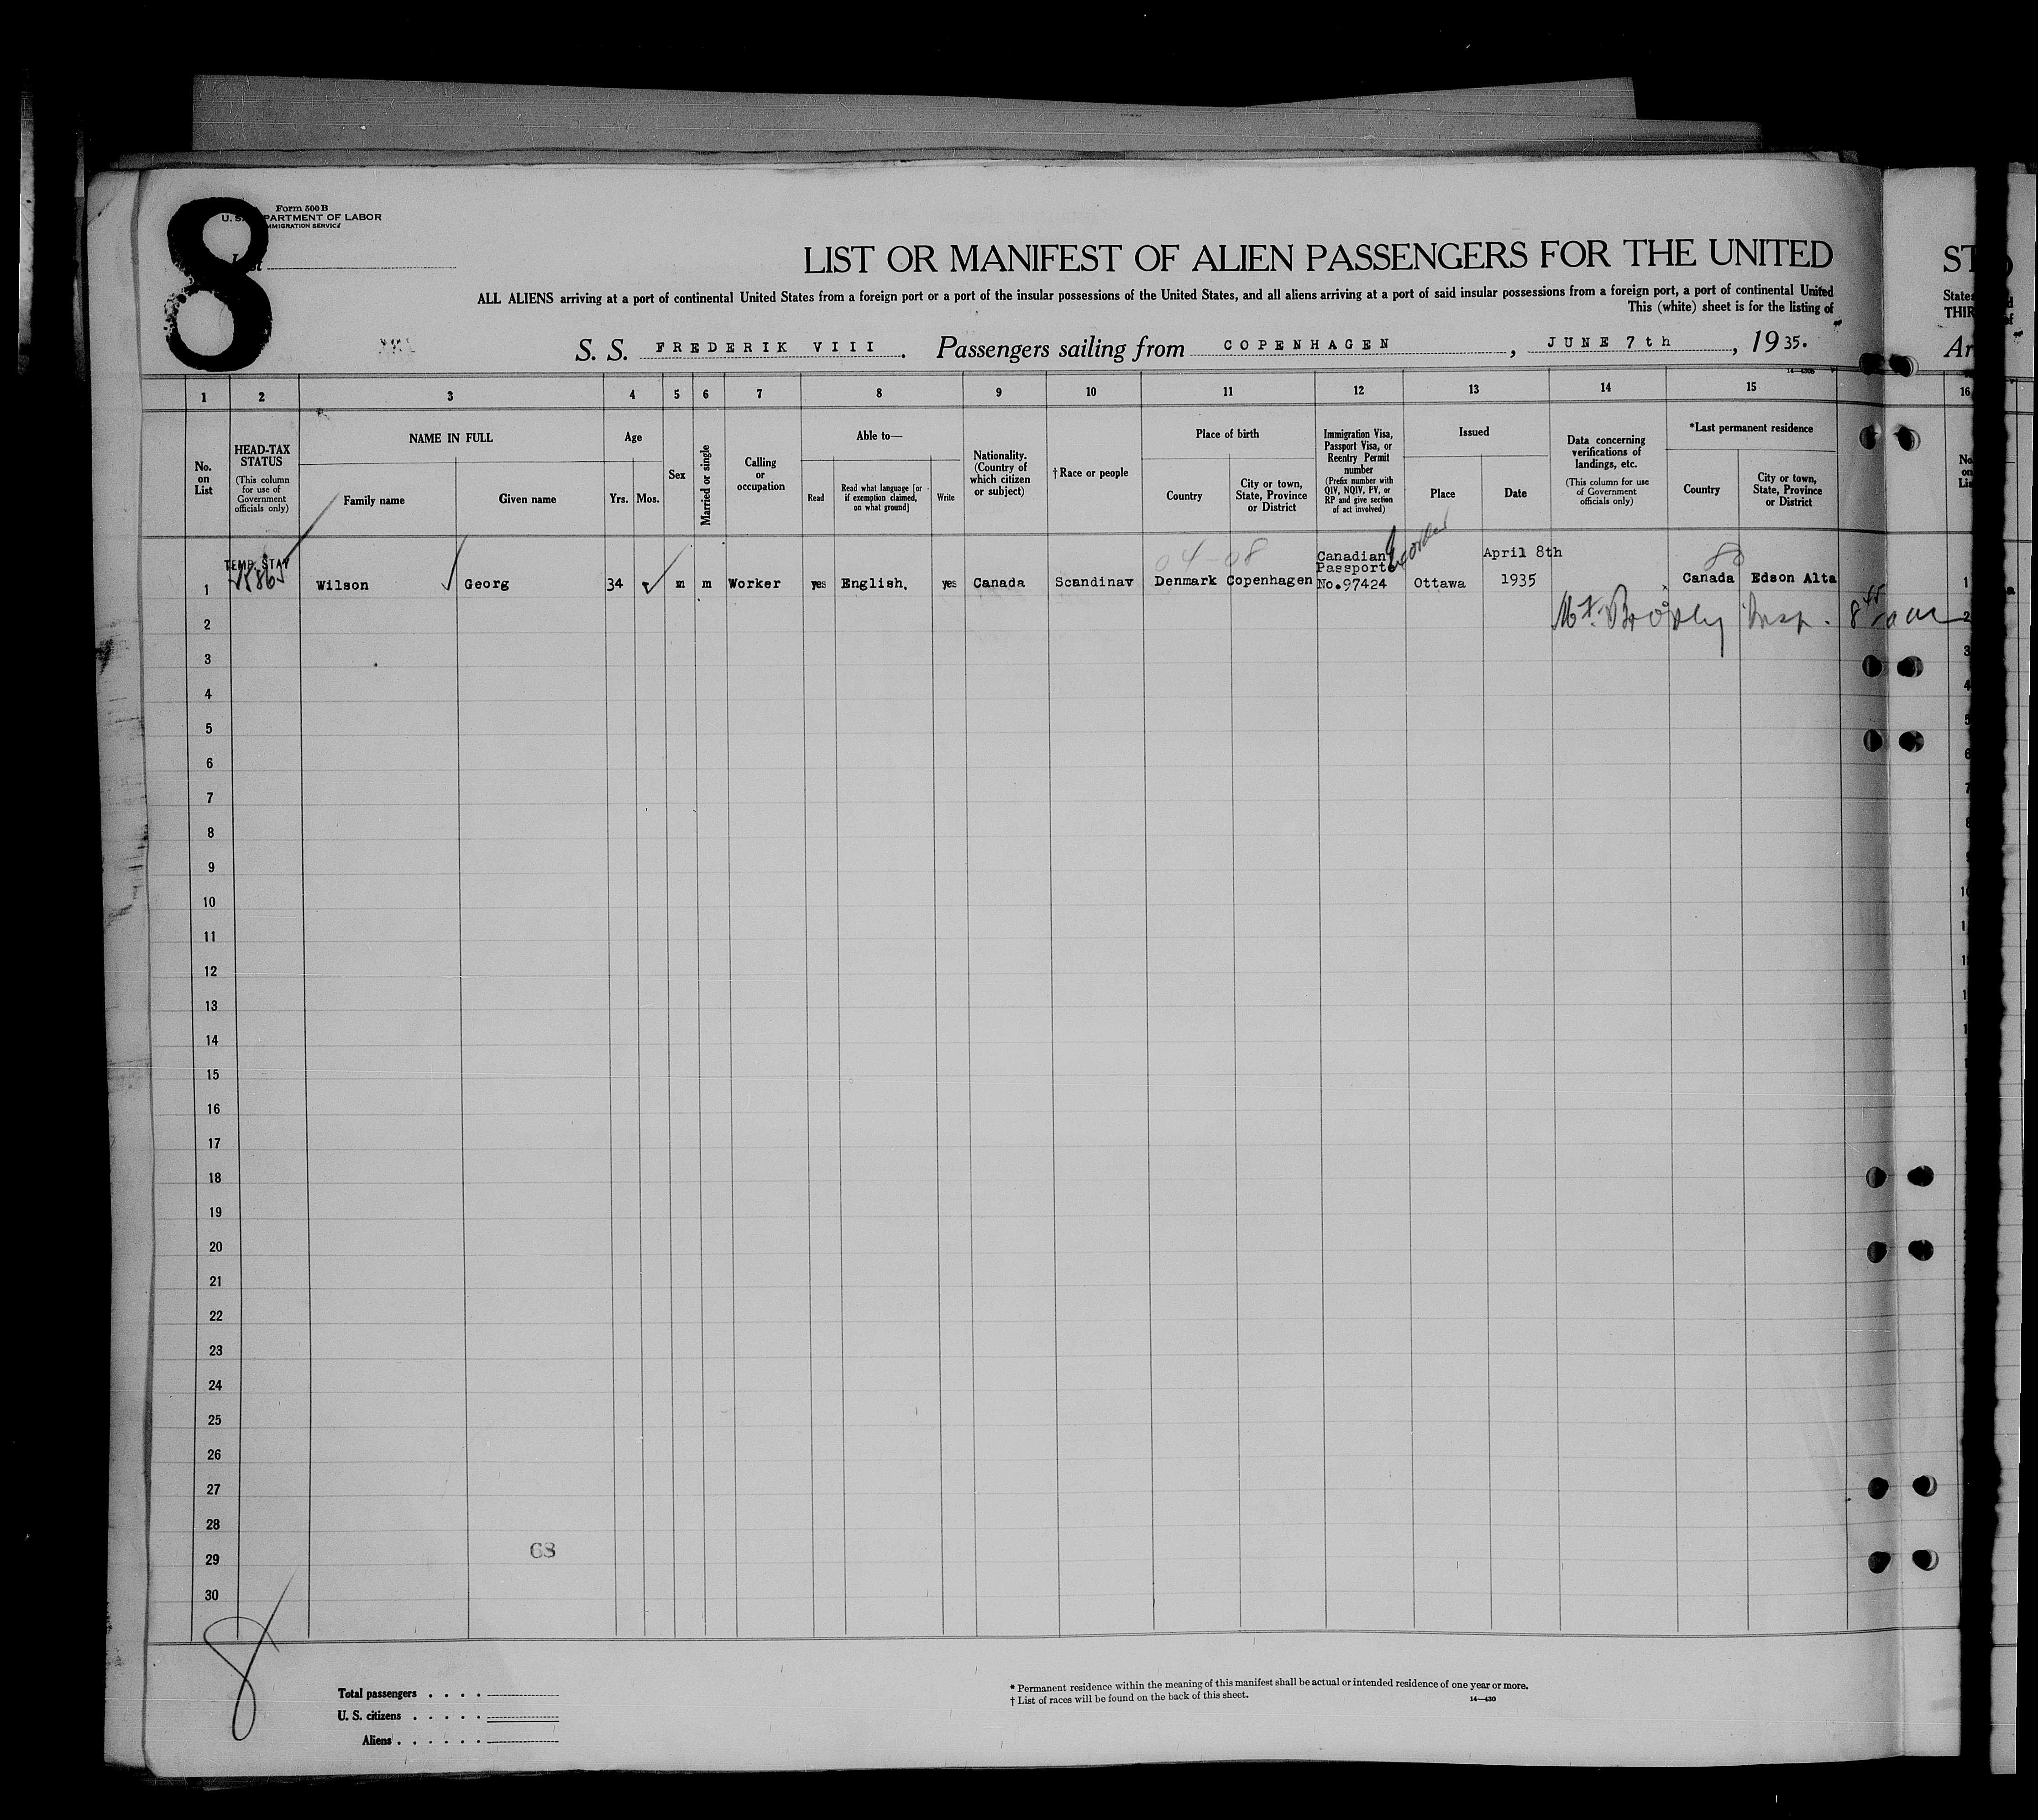 8
Form 500 B
U. S. DEPARTMENT OF LABOR
IMMIGRATION SERVICE
List
LIST OR MANIFEST OF ALIEN PASSENGERS FOR THE UNITED
ST
ALL ALIENS arriving at a port of continental United States from a foreign port or a port of the insular possessions of the United States, and all aliens arriving at a port of said insular possessions from a foreign port, a port of continental United
States
This (white) sheet is for the listing of
THIR
S. S. FREDERIK VIII. Passengers sailing from COPENHAGEN, JUNE 7th, 1935.
Ar
1 2 3 4 5 6 7 8 9 10 11 12 13 14 15 16
No. on List
HEAD-TAX STATUS
(This column for use of Government officials only)
NAME IN FULL
Family name
Given name
Age
Yrs. Mos.
Sex
Married or single
Calling or occupation
Able to—
Read
Read what language [or if exemption claimed, on what ground]
Write
Nationality. (Country of which citizen or subject)
†Race or people
Place of birth
Country
City or town, State, Province or District
Immigration Visa, Passport Visa, or Reentry Permit number
(Prefix number with QIV, NQIV, PV, or RP and give section of act involved)
Issued
Place
Date
Data concerning verifications of landings, etc.
(This column for use of Government officials only)
*Last permanent residence
Country
City or town, State, Province or District
No. on Lis
TEMP. STAY
04-08
Canadian
Passport
April 8th
80
1 Wilson Georg 34 m m Worker yes English. yes Canada Scandinav Denmark Copenhagen No.97424 Ottawa 1935 Canada Edson Alta 1
2 Insp. 2
3
4
5
6
7
8
9
10
11
12
13
14
15
16
17
18
19
20
21
22
23
24
25
26
27
28
29
30
68
8
Total passengers
U. S. citizens
Aliens
* Permanent residence within the meaning of this manifest shall be actual or intended residence of one year or more.
† List of races will be found on the back of this sheet.
14—430